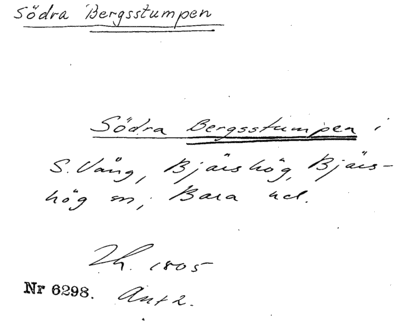 Södra Bergsstumpen
Södra Bergsstumpen i
S. Vång, Bjärshög, Bjärs-
hög sn, Bara hd.
Lh. 1805
Nr 6298. Ant 2.